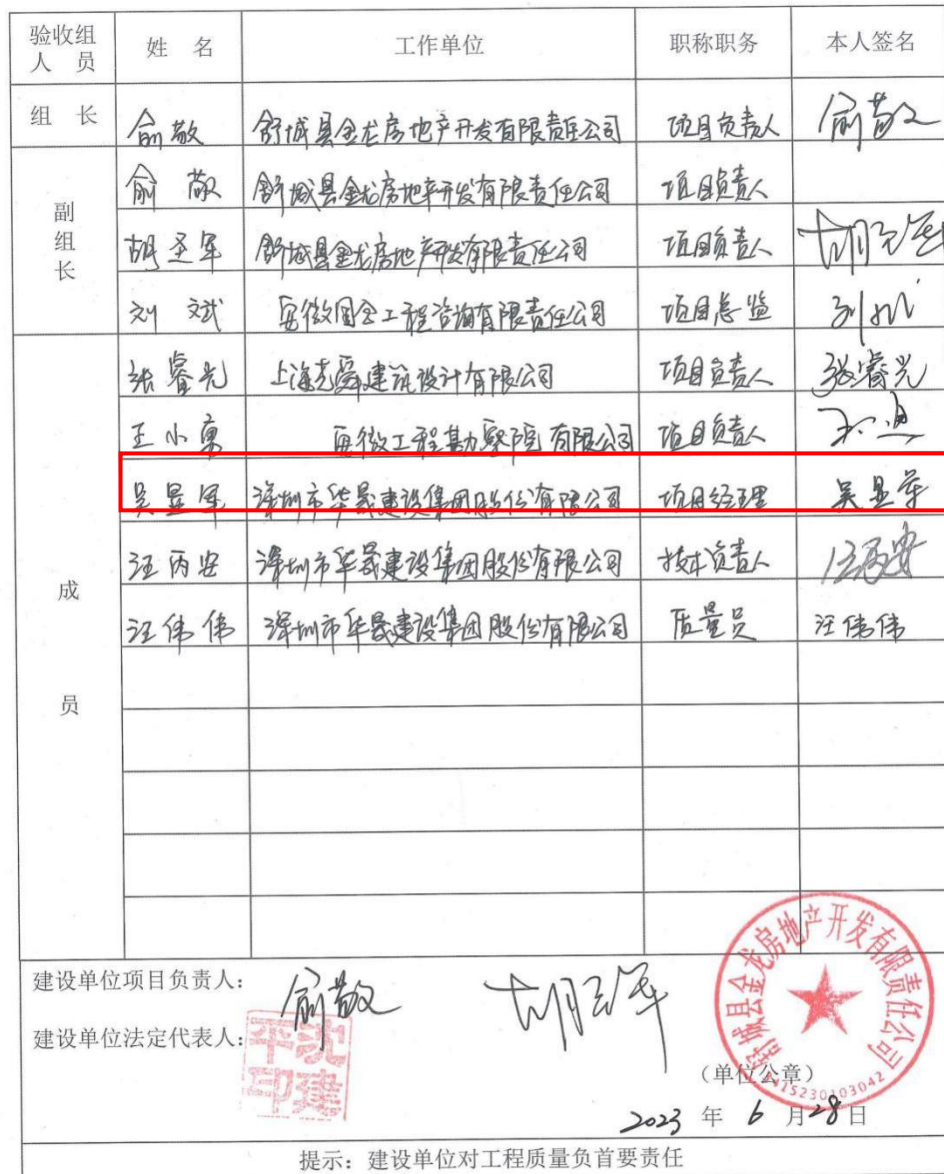 验收组人员 姓 名 工作单位 职称职务 本人签名
组 长 俞敬 舒城县金龙房地产开发有限责任公司 项目负责人 俞敬
副组长 俞 敬 舒城县金龙房地产开发有限责任公司 项目负责人
胡圣军 舒城县金龙房地产开发有限责任公司 项目负责人 胡圣军
刘 斌 安徽国金工程咨询有限责任公司 项目总监 刘斌
成员 张睿光 上海克舜建筑设计有限公司 项目负责人 张睿光
王小勇 安徽工程勘察院有限公司 项目负责人
吴显军 深圳市华晟建设集团股份有限公司 项目经理 吴显军
汪丙安 深圳市华晟建设集团股份有限公司 技术负责人 汪丙安
汪伟伟 深圳市华晟建设集团股份有限公司 质量员 汪伟伟
建设单位项目负责人: 俞敬 胡圣军
建设单位法定代表人: 沈建平印
舒城县金龙房地产开发有限责任公司
(单位公章)
2023 年 6 月 28 日
提示: 建设单位对工程质量负首要责任